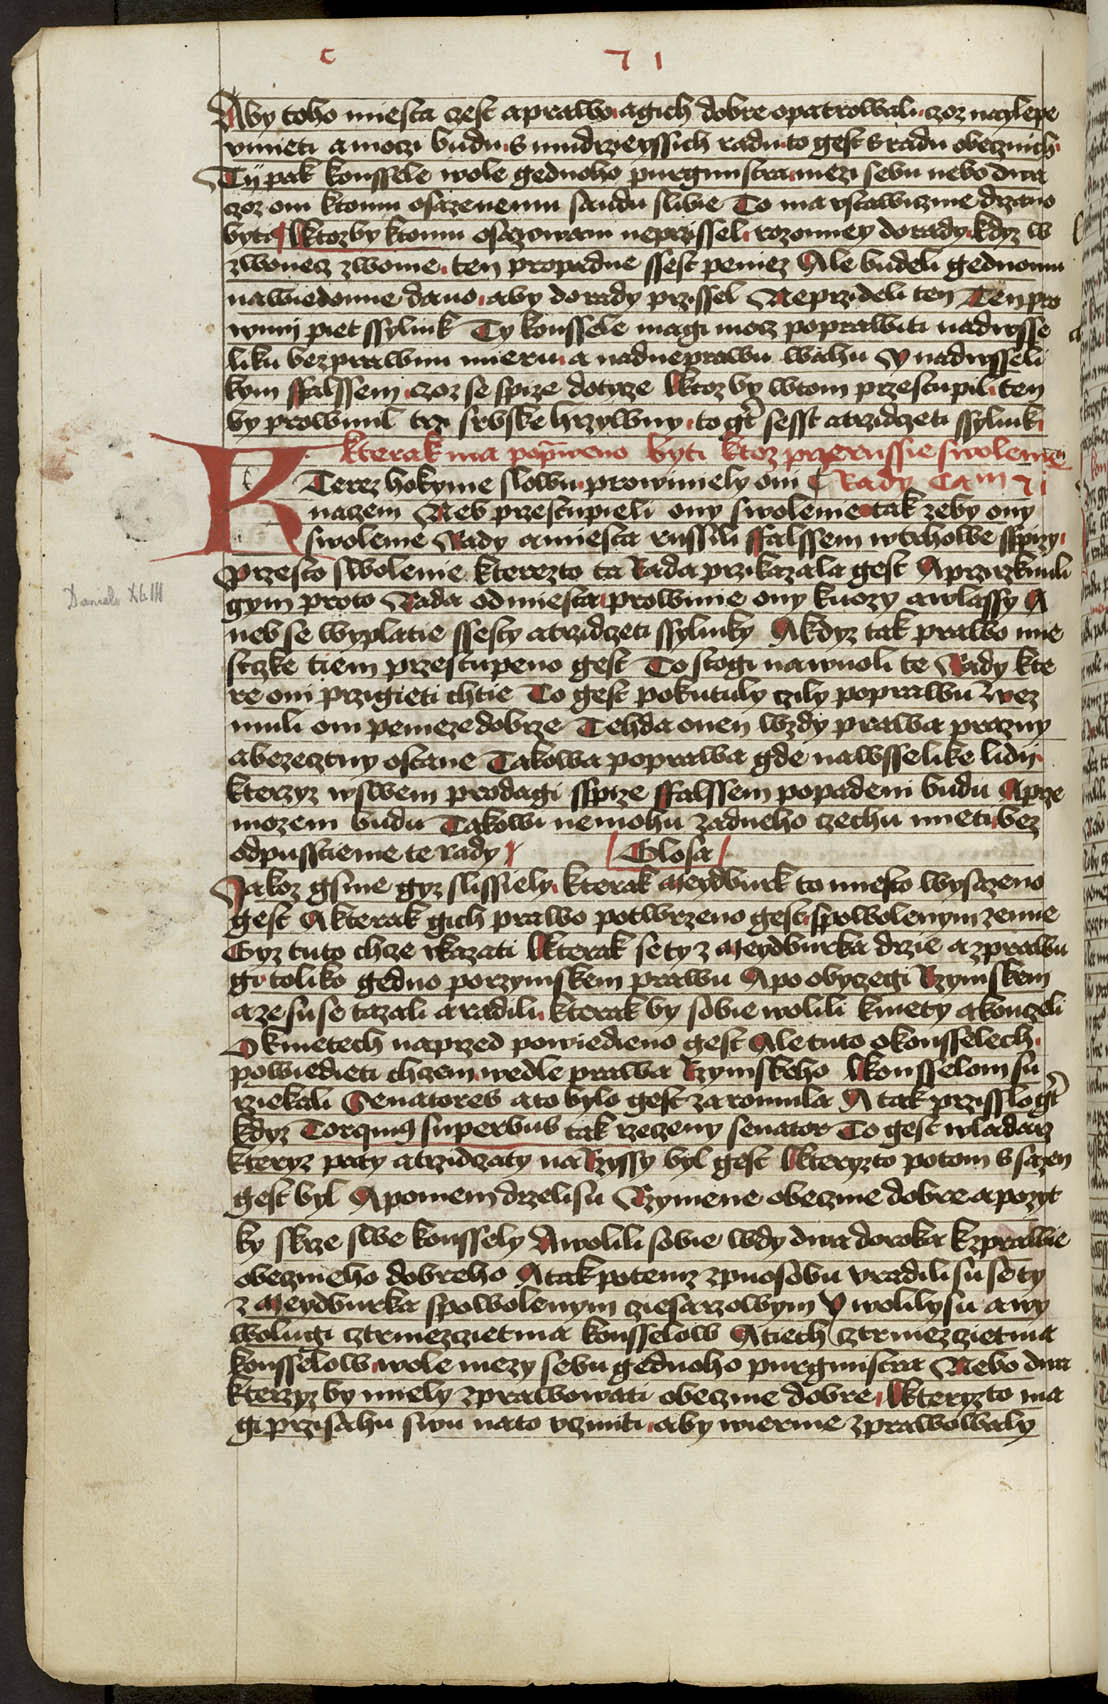 C 71
Aby toho miesta czest a prawo a gich dobre opatrowali czoz naylepe
vmieti a moczi budu s mudrzeyssich radu to gest s radu obecznich
Tij pak konssele wole gednoho purgmistra mezi sebu nebo dwa
czoz oni ktomu osazenemu saudu slibie To ma vstawicznie drzano
byti Ktozby ktomu osazowani neprzissel rozomney dorady kdyz w
zwonecz zwonie ten propadne ssest peniez Ale budeli gednomu
nawiedomie dano aby dorady przissel Neprzideli ten Ten pro
winij piet ssylink Ty konssele magi mocz poprawiti nadwsse
liku bezprawnu mieru a nadneprawu wahu Y nadwsseli
kym ffalssem czoz se spize dotyze Ktoz by wtom przestupil ten
by prowinil trzi srbske hrzywny to gt sesst a trzidczeti ssylink
kterak ma popraweno byti ktoz przierussie swolenie
Terezbokyme slowu prowiniely oni Rady Cam 71
nazem Neb przestupieli ony swolenie tak zeby ony
swolenie Rady a miesta russili ffalssem wtrhowe sspizy
Przesto swolenie kterezto ta Rada przikazala gest A przizkmili
gym proto Rada od miesta prowinie ony kuozy a wlassy A
neb se wyplatie ssesty a trzidczeti ssylinky A kdyz tak prawo mie
stczke tiem przestupeno gest To stogi nawuoli te Rady kte
re oni przigieti chtie To gest pokutuly czily poprawu Wez
muli oni penieze dobrze Tehda onen wzdy prawa prazny
a bezecztny ostane Takowa poprawa gde nawsselike lidi
kterzyz wswem prodagi sspize ffalssem popadeni budu A prze
mozeni budu Takowi nemohu zadneho czechu mieti bez
odpusstienie te rady Glosa
Jakoz gsme gyz slissiely kterak Meydburk to miesto wysazeno
gest A kterak gich prawo potwrzeno gest spowolenym zemie
Gyz tuto chze vkazati Kterak se ty z Meydburka drzie a zprawu
gi toliko gedno porzymskem prawu A po obyczegi Rzymskem
a ze su se tazali a radili kterak by sobie wolili kmety a konczeli
O kmetech naprzed powiedieno gest Ale tuto o konsselech
powiedieti chzem wedle prawa Rzymskeho Konsselom su
rziekali Senatores a to bylo gest za romula A tak przisslo gt
kdyz Torquing superbus tak rzeczeny senator To gest wladarz
kteryz paty a trzidczaty na Rzyssy byl gest Kteryzto potom s sazen
gest byl A po niem drzeli su Rzymene obeczne dobre a pozyt
ky skrze swe konssely A wolili sobie wdy dwa doroka kzprawie
obecznieho dobreho A tak potemz zpuosobu vradili su se ty
z Meydburka spowolenym ciesarzowym Y wolily su a wy
wolugi cztrnezczietma konsselow A tiech cztrnezczietma
konsselow wole mezy sebu gednoho purgmistra Nebo dwa
kterzyz by miely zprawowati obeczne dobre Kteryzto ma
gi przisahu swu nato vcziniti aby wiernie zprawowaly